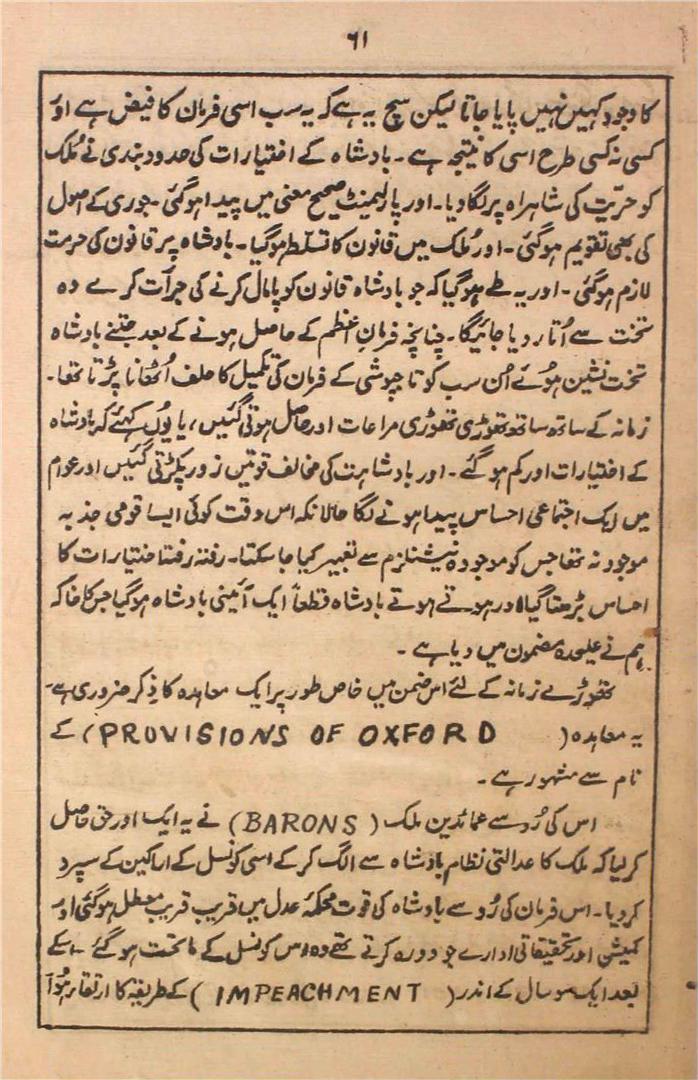 ۶۱
کا وجود کہیں نہیں پایا جاتا لیکن سچ یہ ہے کہ یہ سب اسی فرمان کا فیض ہے اور
کسی نہ کسی طرح اسی کا نتیجہ ہے۔ بادشاہ کے اختیارات کی حدود بندی نے مُلک
کو حریّت کی شاہراہ پر لگا دیا۔ اور پارلیمنٹ صحیح معنی میں پیدا ہوگئی۔ جوری کے اصول
کی بھی تقویم ہوگئی۔ اور مُلک میں قانون کا تسلّط ہوگیا۔ بادشاہ پر قانون کی حرمت
لازم ہوگئی۔ اور یہ طے ہوگیا کہ جو بادشاہ قانون کو پامال کرنے کی جرأت کرے وہ
تخت سے اُتار دیا جائیگا۔ چنانچہ فرمانِ اعظم کے حاصل ہونے کے بعد جتنے بادشاہ
تخت نشین ہوئے اُن سب کو تاجپوشی کے فرمان کی تکمیل کا حلف اُٹھانا پڑتا تھا۔
زمانہ کے ساتھ ساتھ تھوڑی تھوڑی مراعات اور حاصل ہوتی گئیں، یا یُوں کہئے کہ بادشاہ
کے اختیارات اور کم ہوگئے۔ اور بادشاہت کی مخالف قوتیں زور پکڑتی گئیں اور عوام
میں ایک اجتماعی احساس پیدا ہونے لگا حالانکہ اس وقت کوئی ایسا قومی جذبہ
موجود نہ تھا جس کو موجودہ نیشنلزم سے تعبیر کیا جا سکتا۔ رفتہ رفتہ اختیارات کا
احساس بڑھتا گیا اور ہوتے ہوتے بادشاہ قطعاً ایک آئینی بادشاہ ہوگیا جس کا خاکہ
ہم نے علیحدہ مضمون میں دیا ہے۔
تھوڑے زمانہ کے لئے اس ضمن میں خاص طور پر ایک معاہدہ کا ذِکر ضروری ہے۔
یہ معاہدہ (PROVISIONS OF OXFORD) کے
نام سے مشہور ہے۔
اس کی رُو سے عمائدین ملک (BARONS) نے یہ ایک اور حق حاصل
کر لیا کہ ملک کا عدالتی نظام بادشاہ سے الگ کر کے اسی کونسل کے اراکین کے سپرد
کر دیا۔ اس فرمان کی رُو سے بادشاہ کی قوت محکمۂ عدل میں قریب قریب معطل ہوگئی اور
کمیشن اور تحقیقاتی ادارے جو دورہ کرتے تھے وہ اس کونسل کے ماتحت ہوگئے۔ اسکے
بعد ایک سو سال کے اندر (IMPEACHMENT) کے طریقہ کا ارتقاء ہُوا